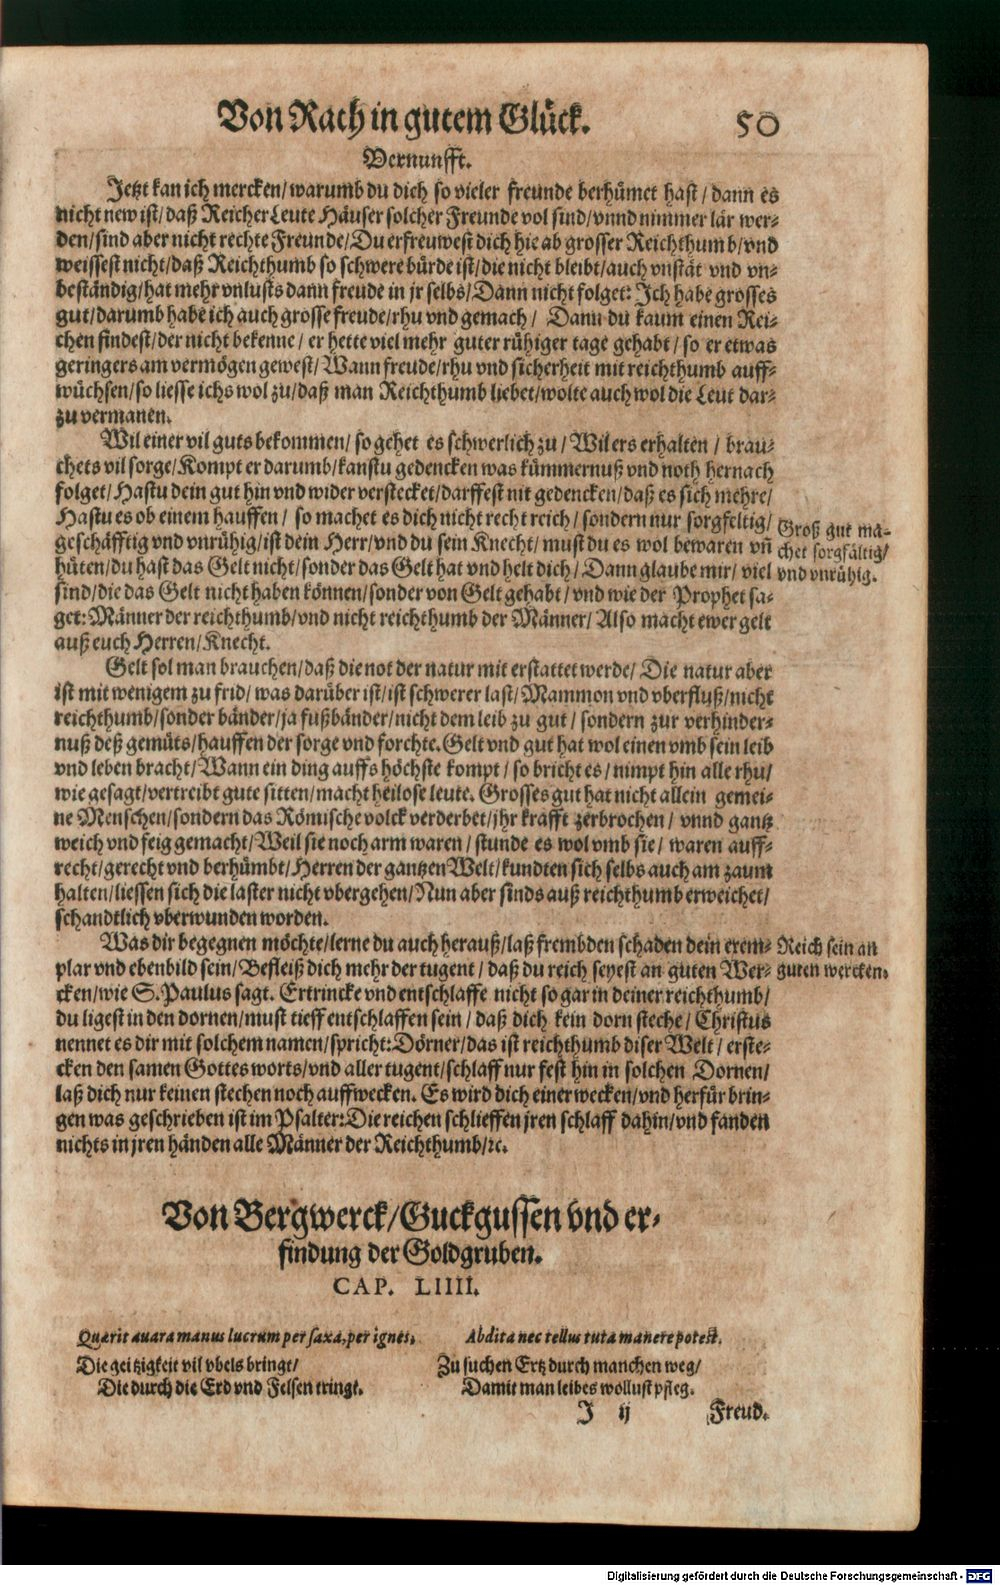 Von Rath in gutem Glück. 50
Vernunfft.
Jetzt kan ich mercken/warumb du dich so vieler freunde berhümet hast/dann es
nicht new ist/daß Reicher Leute Häuser solcher Freunde vol sind/vnnd nimmer lär wer-
den/sind aber nicht rechte Freunde/Du erfreuwest dich hie ab grosser Reichthumb/vnd
weissest nicht/daß Reichthumb so schwere bürde ist/die nicht bleibt/auch vnstät vnd vn-
beständig/hat mehr vnlusts dann freude in jr selbs/Dann nicht folget: Ich habe grosses
gut/darumb habe ich auch grosse freude/rhu vnd gemach/ Dann du kaum einen Rei-
chen findest/der nicht bekenne/er hette viel mehr guter rühiger tage gehabt/so er etwas
geringers am vermögen gewest/Wann freude/rhu vnd sicherheit mit reichthumb auff-
wüchsen/so liesse ichs wol zu/daß man Reichthumb liebet/wolte auch wol die Leut dar-
zu vermanen.
Wil einer vil guts bekommen/so gehet es schwerlich zu/Wil ers erhalten/brau-
chets vil sorge/Kompt er darumb/kanstu gedencken was kümmernuß vnd noth hernach
folget/Hastu dein gut hin vnd wider verstecket/darffest nit gedencken/daß es sich mehre/
Hastu es ob einem hauffen/so machet es dich nicht recht reich/sondern nur sorgfeltig/
geschäfftig vnd vnrühig/ist dein Herr/vnd du sein Knecht/must du es wol bewaren vñ
hüten/du hast das Gelt nicht/sonder das Gelt hat vnd helt dich/Dann glaube mir/viel
sind/die das Gelt nicht haben können/sonder von Gelt gehabt/vnd wie der Prophet sa-
get: Männer der reichthumb/vnd nicht reichthumb der Männer/Also macht ewer gelt
auß euch Herren/Knecht.
Groß gut ma-
chet sorgfältig/
vnd vnrühig.
Gelt sol man brauchen/daß die not der natur mit erstattet werde/Die natur aber
ist mit wenigem zu frid/was darüber ist/ist schwerer last/Mammon vnd vberfluß/nicht
reichthumb/sonder bänder/ja fußbänder/nicht dem leib zu gut/sondern zur verhinder-
nuß deß gemüts/hauffen der sorge vnd forchte. Gelt vnd gut hat wol einen vmb sein leib
vnd leben bracht/Wann ein ding auffs höchste kompt/so bricht es/nimpt hin alle rhu/
wie gesagt/vertreibt gute sitten/macht heilose leute. Grosses gut hat nicht allein gemei-
ne Menschen/sondern das Römische volck verderbet/jhr krafft zerbrochen/vnnd gantz
weich vnd feig gemacht/Weil sie noch arm waren/stunde es wol vmb sie/waren auff-
recht/gerecht vnd berhümbt/Herren der gantzen Welt/kundten sich selbs auch am zaum
halten/liessen sich die laster nicht vbergehen/Nun aber sinds auß reichthumb erweichet/
schandtlich vberwunden worden.
Was dir begegnen möchte/lerne du auch herauß/laß frembden schaden dein exem-
plar vnd ebenbild sein/Befleiß dich mehr der tugent/daß du reich seyest an guten Wer-
cken/wie S. Paulus sagt. Ertrincke vnd entschlaffe nicht so gar in deiner reichthumb/
du ligest in den dornen/must tieff entschlaffen sein/daß dich kein dorn steche/Christus
nennet es dir mit solchem namen/spricht: Dörner/das ist reichthumb diser Welt/erste-
cken den samen Gottes worts/vnd aller tugent/schlaff nur fest hin in solchen Dornen/
laß dich nur keinen stechen noch auffwecken. Es wird dich einer wecken/vnd herfür brin-
gen was geschrieben ist im Psalter: Die reichen schlieffen jren schlaff dahin/vnd fanden
nichts in jren händen alle Männer der Reichthumb/ꝛc.
Reich sein an
guten wercken.
Von Bergwerck/Guckgussen vnd er-
findung der Goldgruben.
CAP. LIIII.
Quærit auara manus lucrum per saxa, per ignes,
Abdita nec tellus tuta manere potest.
Die geitzigkeit vil vbels bringt/
Die durch die Erd vnd Felsen tringt.
Zu suchen Ertz durch manchen weg/
Damit man leibes wollust pfleg.
J ij Freud.
Digitalisierung gefördert durch die Deutsche Forschungsgemeinschaft - DFG